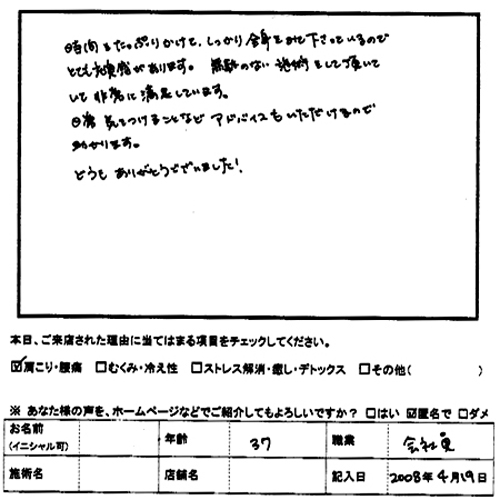 時間をたっぷりかけて、しっかり全身をみて下さっているので
とても充実感があります。 無駄のない施術をして頂いて
いて非常に満足しています。
日常気をつけることなどアドバイスもいただけるので
助かります。
どうもありがとうございました!
本日、ご来店された理由に当てはまる項目をチェックしてください。
☑肩こり・腰痛 □むくみ・冷え性 □ストレス解消・癒し・デトックス □その他( )
※ あなた様の声を、ホームページなどでご紹介してもよろしいですか? □はい ☑匿名で □ダメ
お名前 (イニシャル可) 年齢 37 職業 会社員
施術名 店舗名 記入日 2008年4月19日